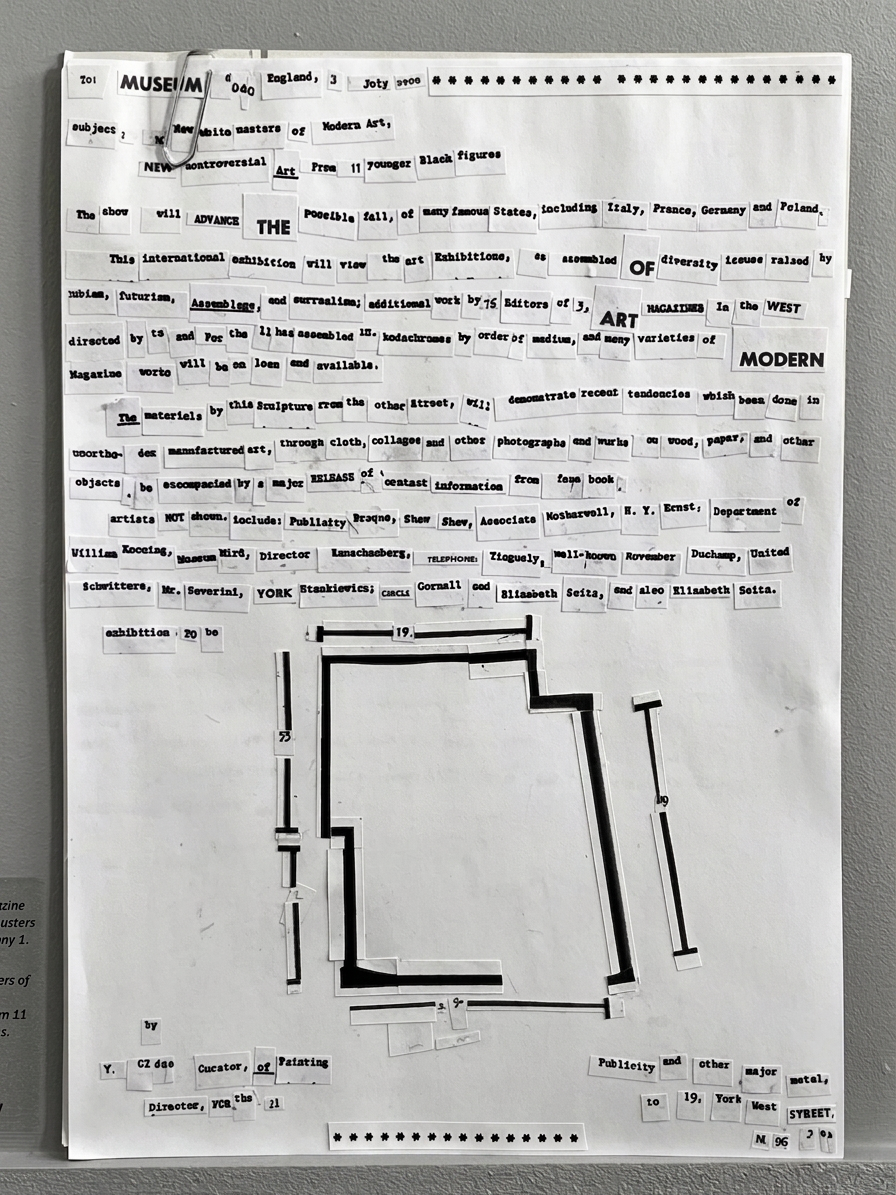 701 MUSEUM d 040 England, 3 Joty 9900 * * * * * * * * * * * * * * * * * * * * * * * * *
subjecs, New wbite masters of Modern Art,
NEW nontroversial Art Prsm 11 younger Black figures
The show will ADVANCE THE Poceible fall, of many famous States, including Italy, Prance, Germany and Poland.
This international exhibition will view the art Exhibitions, as assembled OF diversity iceuse raised by
nubism, futurism, Assemblege, and surrealism; additional work by 75 Editors of 3, ART MAGAZINES In the WEST
directed by ts and Por the 11 has assembled in. kodachromes by order of medium, and meny varieties of MODERN
Magazine worto will be on loen and available.
The materiels by this Sculpture from the other Street, wil; demonstrate recent tendencies wbish been done in
uoortho- dex mannfactured art, through cloth, collages and other photographs and wurks ou wood, papar, and otbar
objacts . be escompacied by a major RELEASE of contast information from fene book.
artists NOT shown. include: Publiaity Braqno, Shew Shev, Associate Kosharvoll, H. Y. Ernst; Department of
William Kooning, Museum Miró, Director Lanachasberg, TELEPHONE: Tinguely, woll-known November Duchamp, United
Schwitters, Mr. Severini, YORK Stankiewics; CIRCLE Gornall and Elisabeth Seitz, and aleo Elisabeth Seita.
exhibition 20 be
19.
53
19
2 9
by
Y. CZ dae Cucator, of Painting
Director, YCR ths 21
Publicity and other major metal,
to 19, York West SYREET,
N 96
* * * * * * * * * * * * * * *
azine
usters
any 1.
ers of
m 11
s.